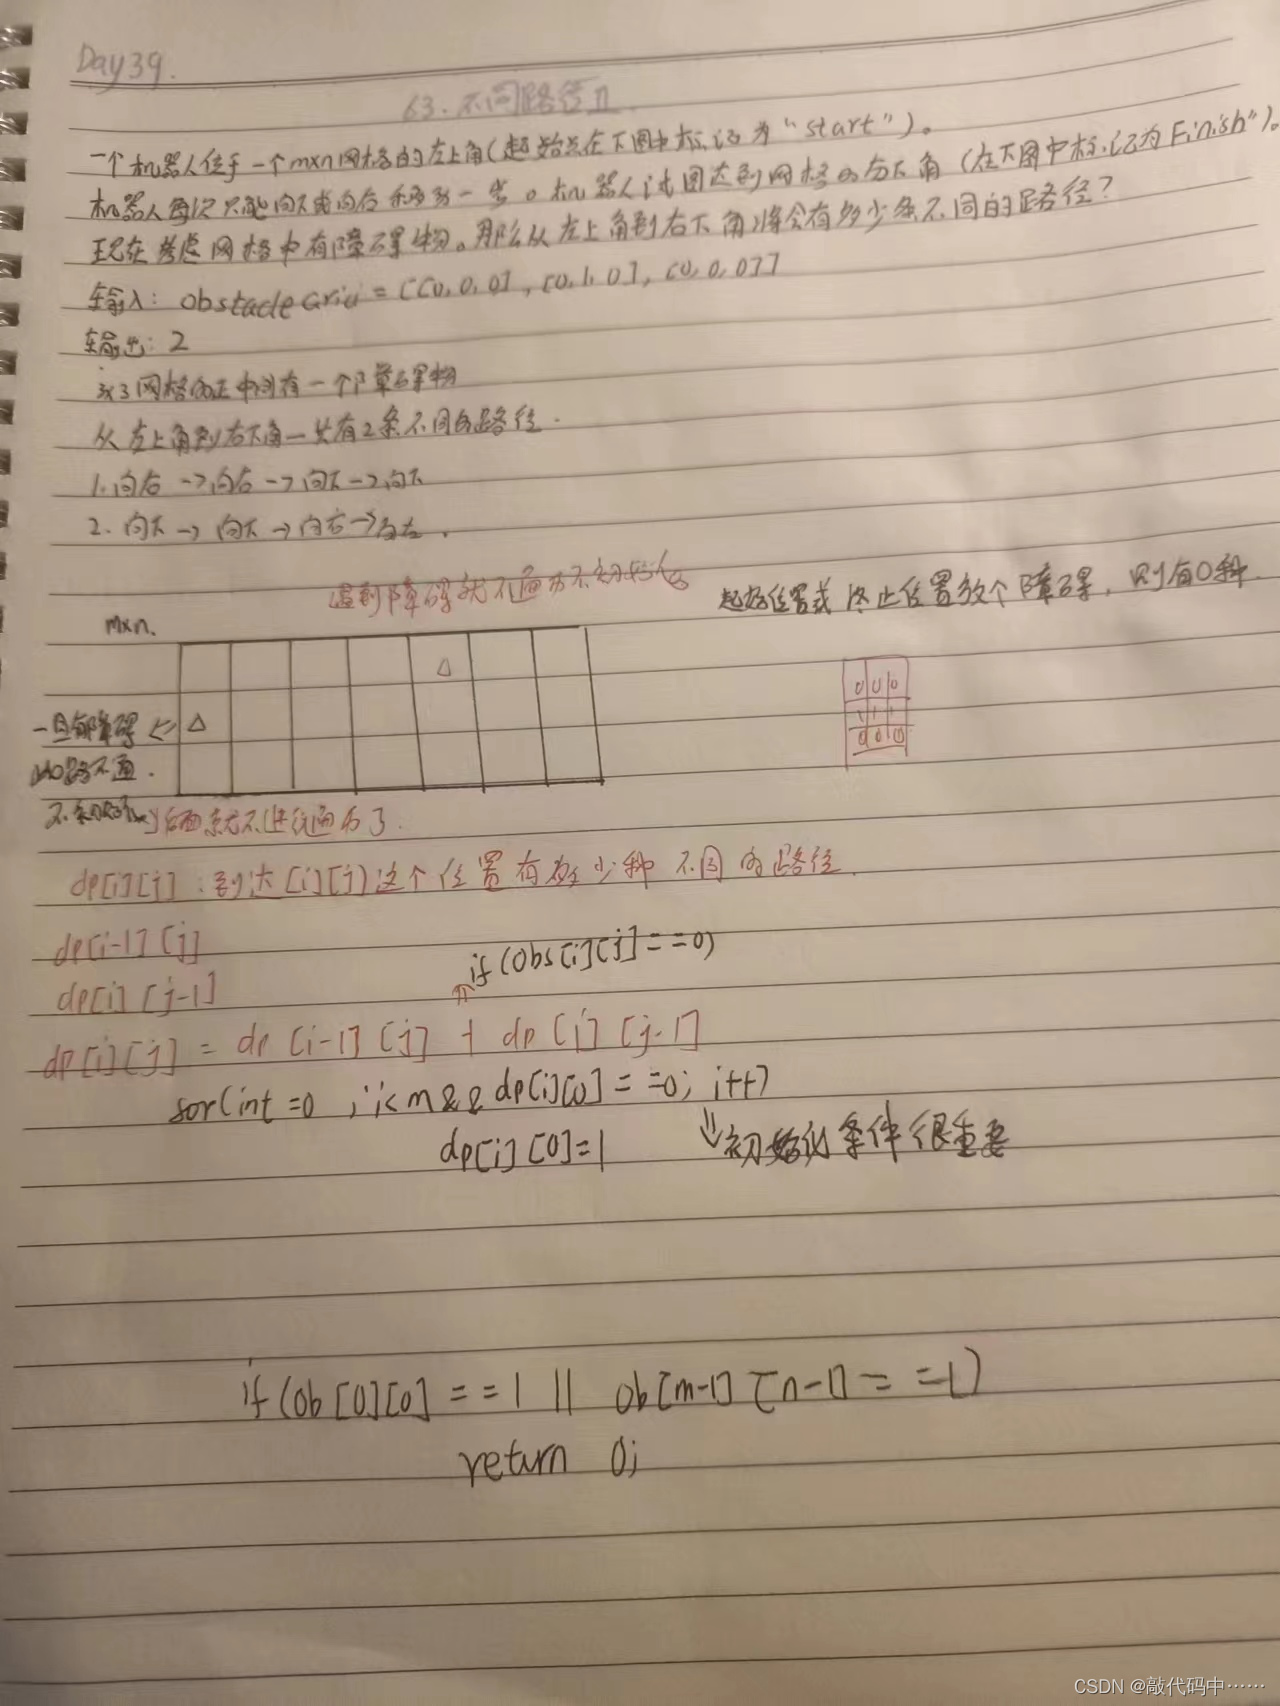 Day39.
63.不同路径II
一个机器人位于一个mxn网格的左上角(起始点在下图中标记为“start”)。
机器人每次只能向下或向右移动一步。机器人试图达到网格的右下角(在下图中标记为Finish”)。
现在考虑网格中有障碍物。那么从左上角到右下角将会有多少条不同的路径?
输入: obstacleGrid = [[0,0,0],[0,1,0],[0,0,0]]
输出: 2
3x3网格的正中间有一个障碍物
从左上角到右下角一共有2条不同的路径.
1.向右->向右->向下->向下
2.向下->向下->向右->向右.
遇到障碍就不遍历不初始化
起始位置或终止位置放个障碍,则有0种.
mxn.
0 0 0
1 1 1
0 0 0
一旦有障碍 <=
这路不通.
不初始化 后面就不进行遍历了.
dp[i][j]:到达[i][j]这个位置有多少种不同的路径.
dp[i-1][j]
if(obs[i][j]==0)
dp[i][j-1]
dp[i][j] = dp[i-1][j] + dp[i][j-1]
for(int =0 ; i<m&&dp[i][0]==0; i++)
dp[i][0]=1
初始化条件很重要
if(ob[0][0]==1 || ob[m-1][n-1]==1)
return 0;
CSDN @敲代码中……